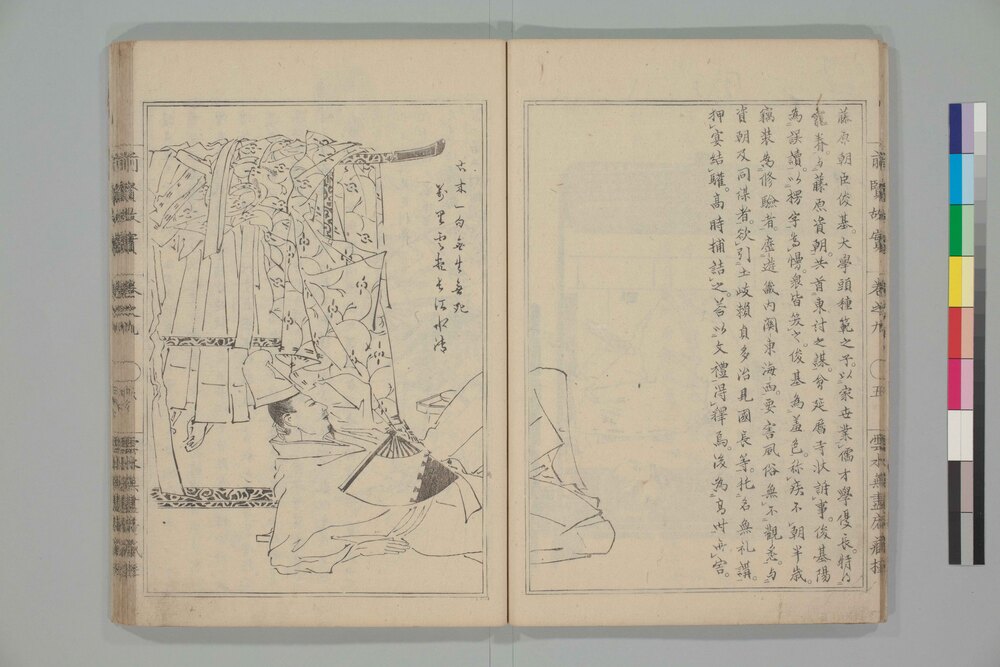 藤原朝臣俊基。大學頭種範之子。以家世業儒。才學優長。特
寵眷與藤原資朝。共首東討之謀。會延曆寺狀訴事。俊基陽
為誤讀。以楞字為慢。衆皆笑之。俊基為羞色。称疾不朝半歳。
竊装為修驗者。歴遊畿内関東海西。要害風俗無不觀悉。与
資朝及同謀者。欲引土岐頼貞多治見國長等。托名無礼講。
押宴結驩。高時捕詰之。荅以文禮得釋焉。後為高時所害。
前賢故實 卷之九 ○ 五 雲水無盡庵蔵梓
古来一句無死無生
萬里雲盡長江水清